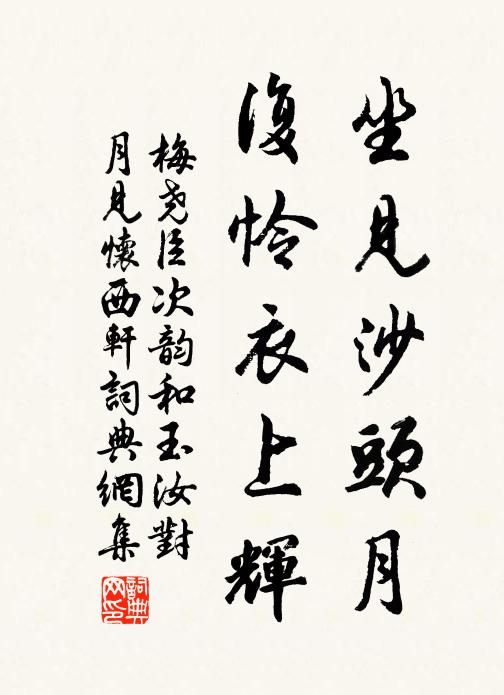 坐見沙頭月
復憐衣上輝
梅堯臣次韵和玉汝對
月見懷西軒詞典網集
詞典
网印